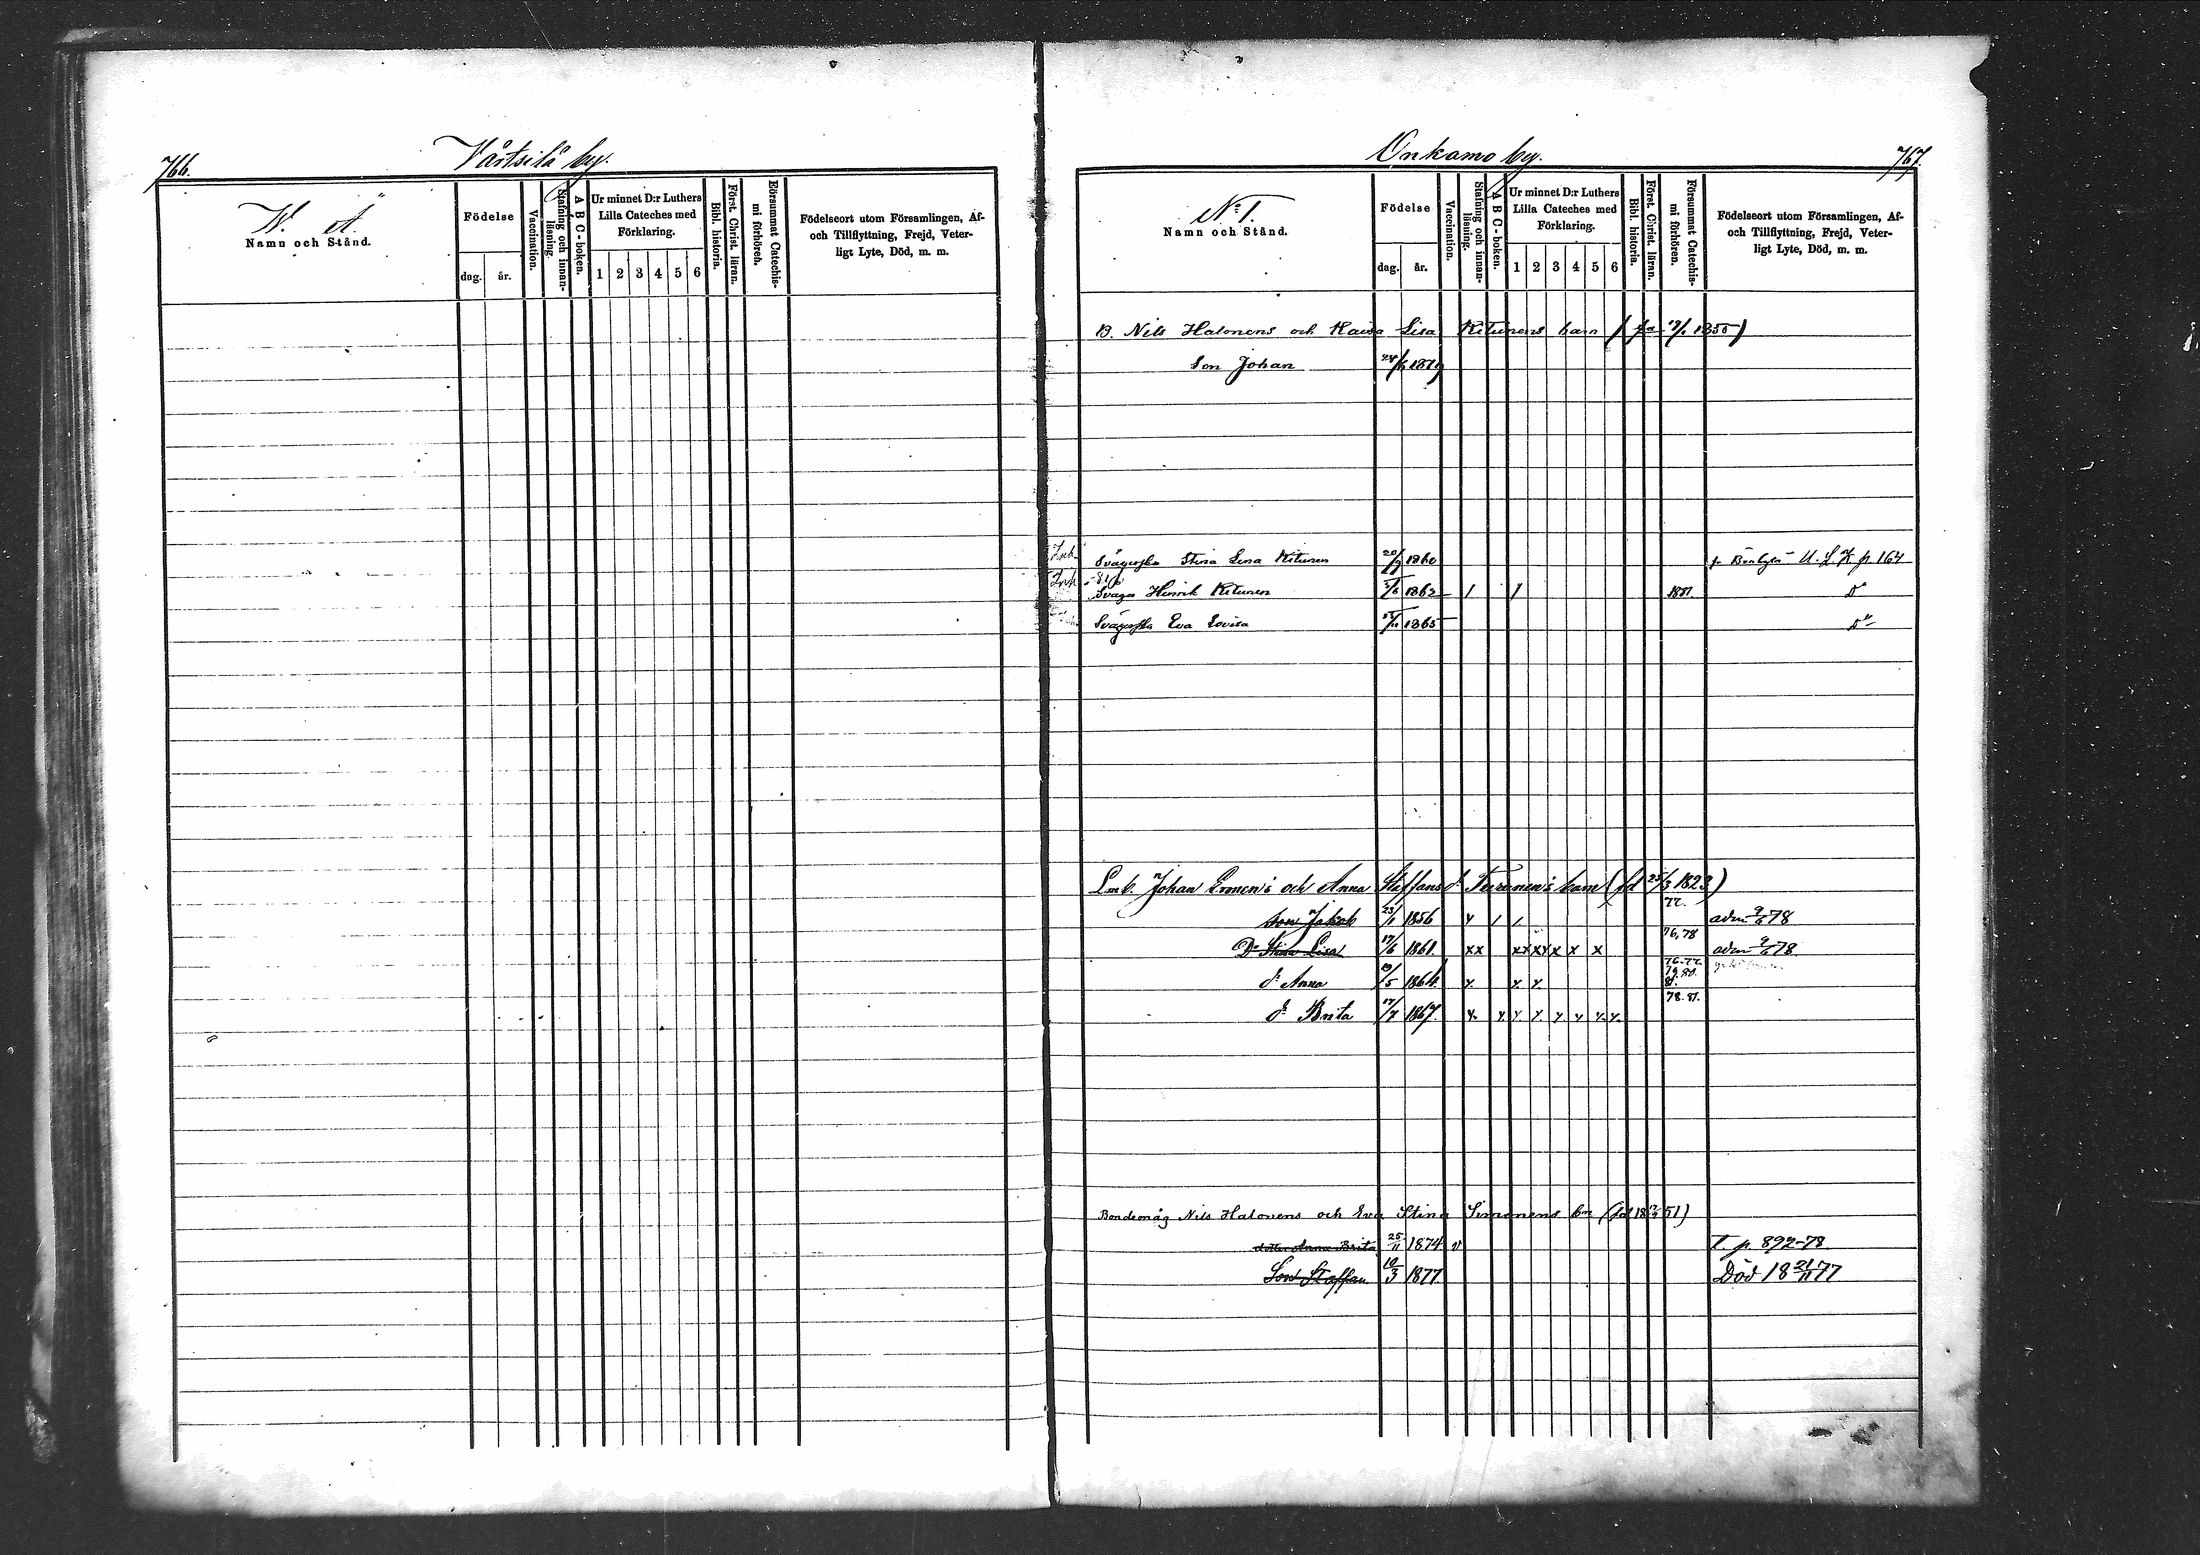 766.
Värtsilä by.
W. Ä.
Namn och Stånd.
Födelse
dag. år.
Vaccination.
Stafning och innan-läsning.
A B C-boken.
Ur minnet D:r Luthers Lilla Cateches med Förklaring.
1 2 3 4 5 6
Bibl. historia.
Först. Christ. läran.
Försummat Catechis-mi förhören.
Födelseort utom Församlingen, Af- och Tillflyttning, Frejd, Veter-ligt Lyte, Död, m. m.
Onkamo by.
767.
N:o 1.
Namn och Stånd.
Födelse
dag. år.
Vaccination.
Stafning och innan-läsning.
A B C-boken.
Ur minnet D:r Luthers Lilla Cateches med Förklaring.
1 2 3 4 5 6
Bibl. historia.
Först. Christ. läran.
Försummat Catechis-mi förhören.
Födelseort utom Församlingen, Af- och Tillflyttning, Frejd, Veter-ligt Lyte, Död, m. m.
B. Nils Halonens och Kaisa Lisa Kitunens barn
Son Johan 1879
Inh. Svägerska Stina Lena Kitunen 1860 p. 164
Inh. Svåger Henrik Kitunen 5/6 1862 / / 1881. D:o
Svägerska Eva Lovisa 1865 D:o
Lmb. Johan Ernen's och Anna Staffans d:r Turunen's barn (fd 25/3 1823)
son Jakob 23/1 1856 x / / 77. adm 9/6 78
D:r Stina Lisa 17/6 1861. xx xxxxx x x 76, 78 adm 9/6 78.
d:r Anna 19/5 1864. x x x 76. 77. 79. 80. 81.
d:r Brita 17/7 1867. x. x x. x x x x. x. 78. 81.
Bondemåg Nils Halonens och Eva Stina Simonens bn
dotter Anna Brita 25/11 1874 v T. p. 892-78.
Son Staffan 10/3 1877. Död 18 21/11 77